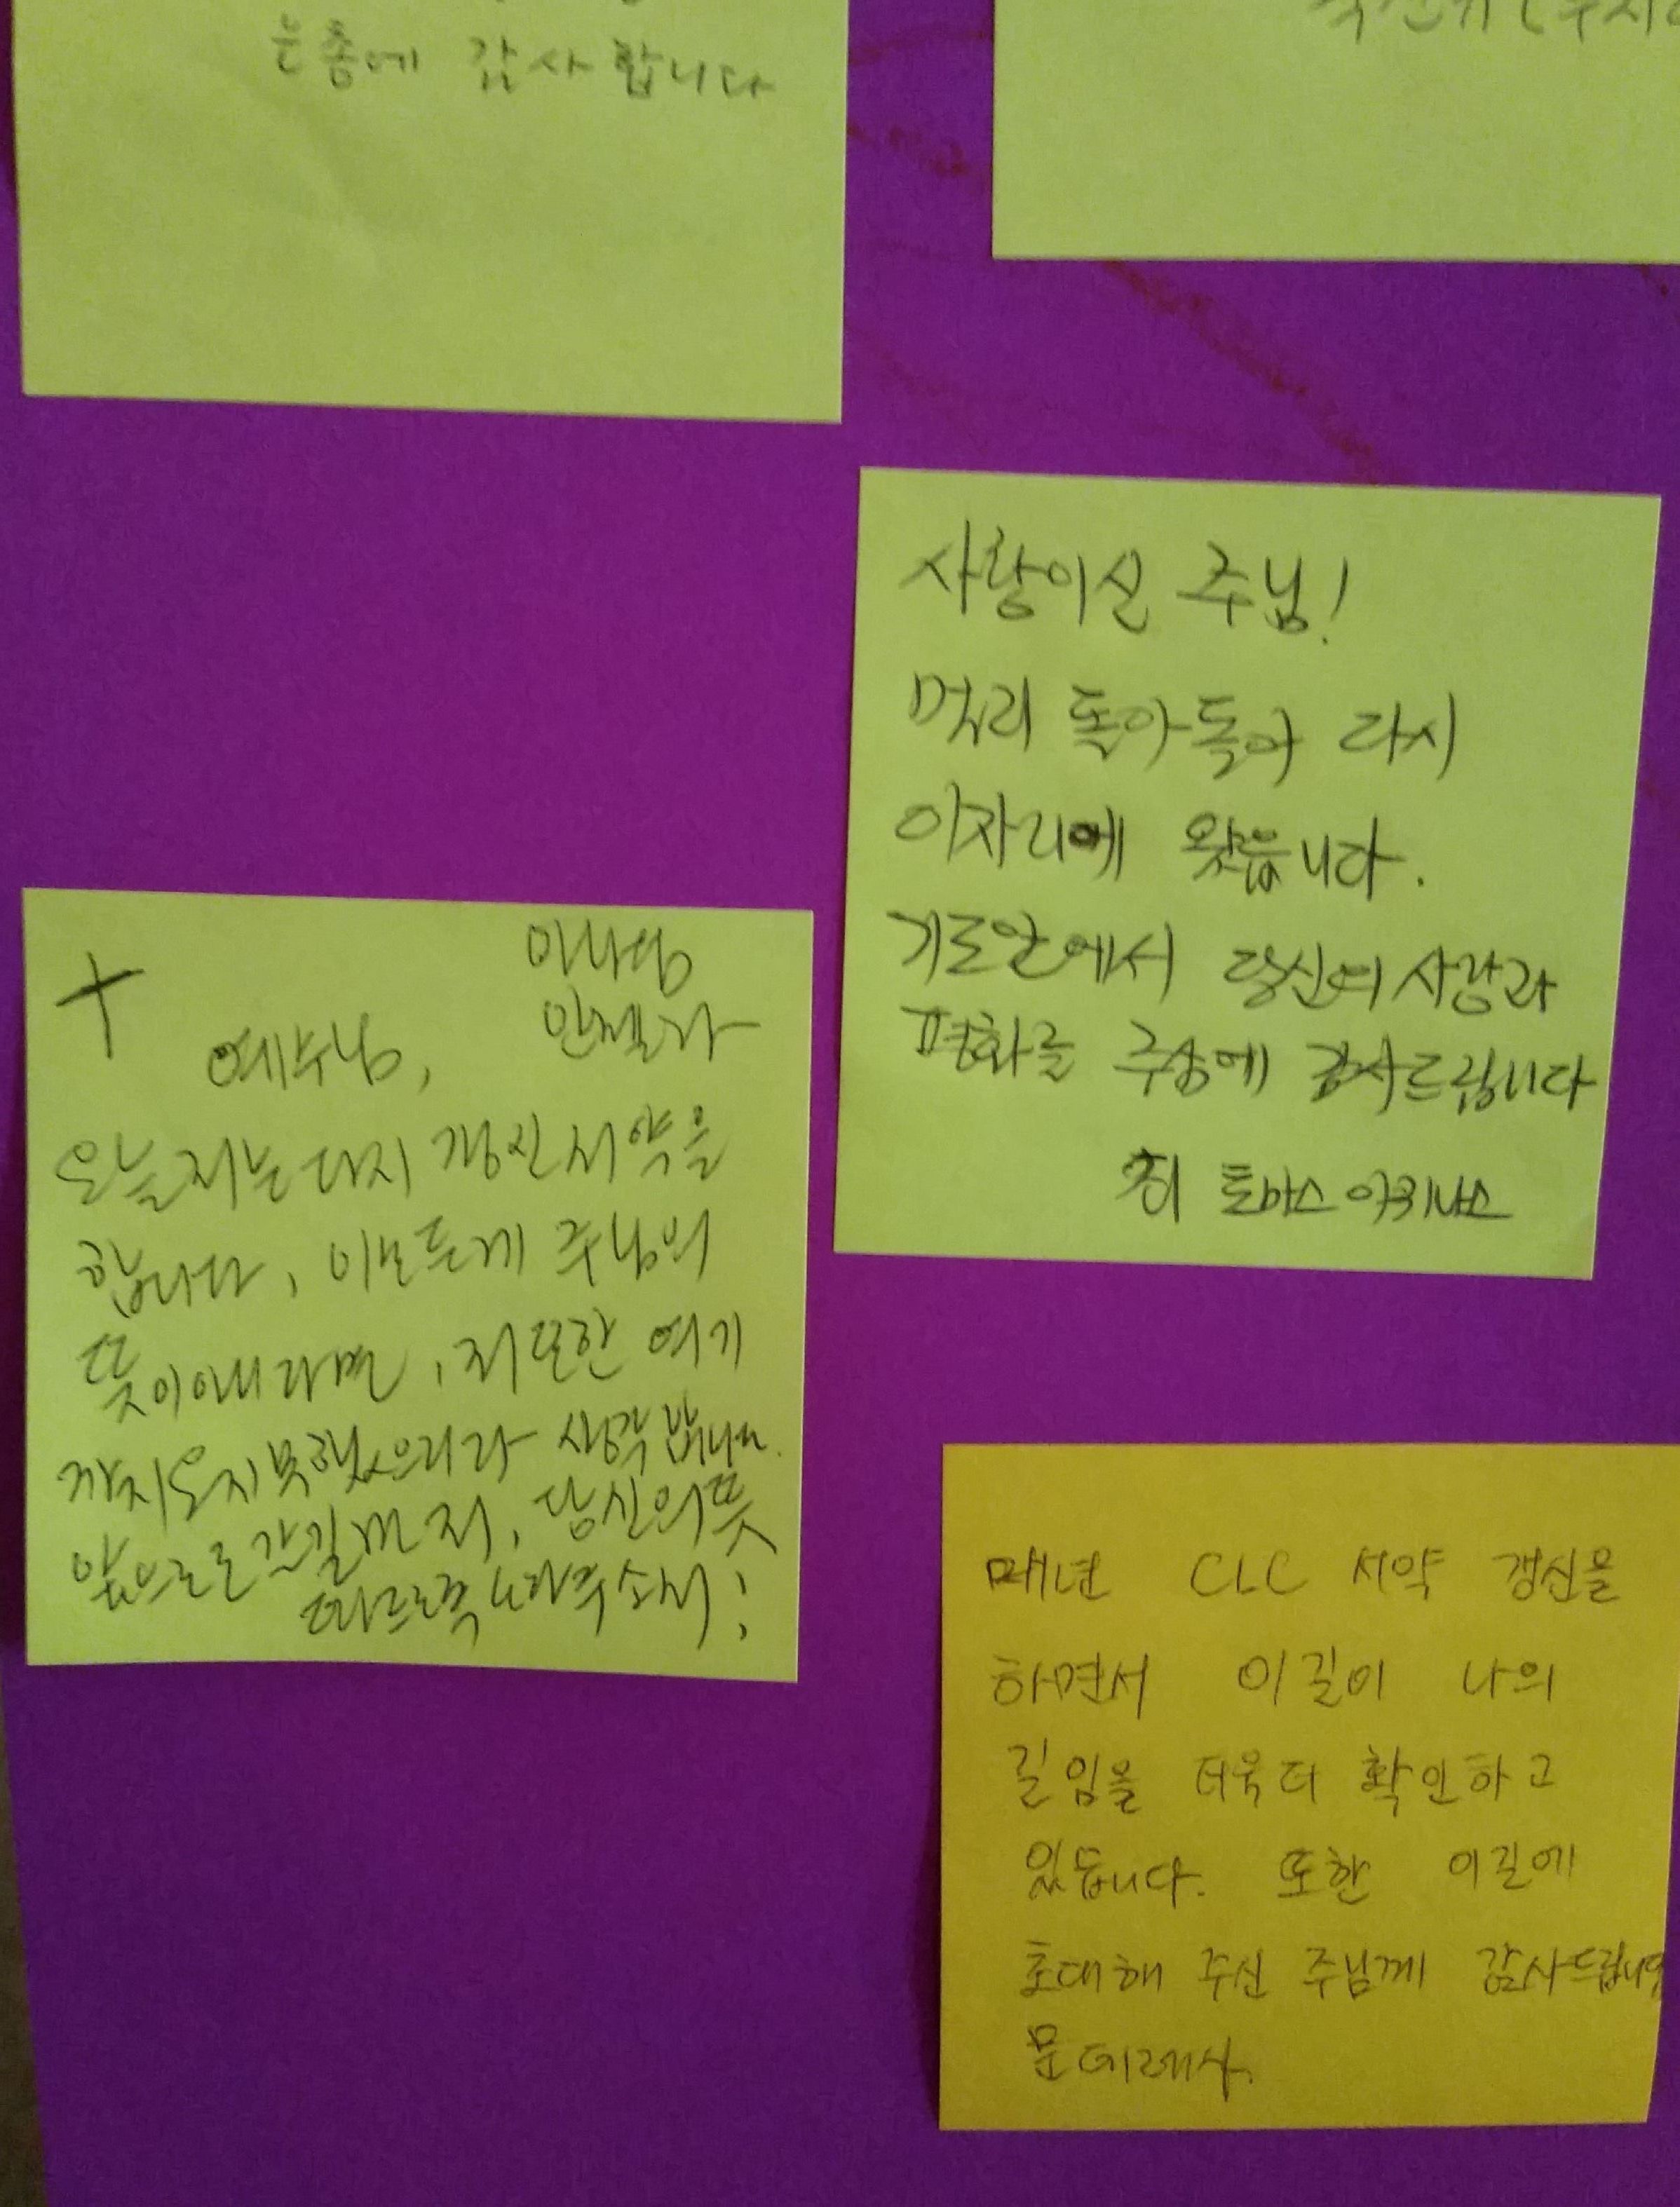 은총에 감사합니다
사랑이신 주님!
멀리 돌아돌아 다시
이자리에 왔읍니다.
기도안에서 당신의 사랑과
평화를 주심에 감사드립니다
최 토마스 아퀴나스
안젤라
예수님,
오늘 저는 다시 갱신 서약을
합니다, 이모든게 주님의
뜻이 아니라면, 저 또한 여기
까지 오지 못했으리라 생각합니다.
앞으로 갈길까지, 당신의 뜻
따르도록 도와주소서!
매년 CLC 서약 갱신을
하면서 이길이 나의
길임을 더욱더 확인하고
있습니다. 또한 이길에
초대해 주신 주님께 감사드립니다
문데레사.